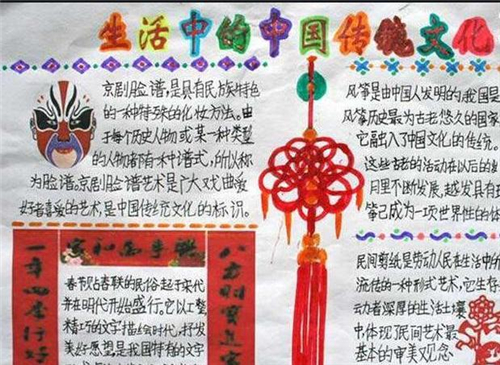 生活中的中国传统文化
京剧脸谱,是具有民族特色
的一种特殊的化妆方法。由
于每个历史人物或某一种类型
的人物都有一种谱式,所以称
为脸谱。京剧脸谱艺术是广大戏曲爱
好者喜爱的艺术,是中国传统文化的标识。
风筝是由中国人发明的,我国是
风筝历史最为古老悠久的国家
它融入了中国文化的传统。
这些古老的活动在以后的
月里不断发展,越发具有
筝已成为一项世界性的体
一年四季行好
八方财宝进
春节贴春联的民俗起于宋代
并在明代开始盛行。它以工整
精巧的文字描绘时代,抒发
美好愿望,是我国特有的文字
民间剪纸是劳动人民在生活中的
流传的一种形式艺术,它生存
动者深厚的生活土壤
中体现了民间艺术最
基本的审美观念